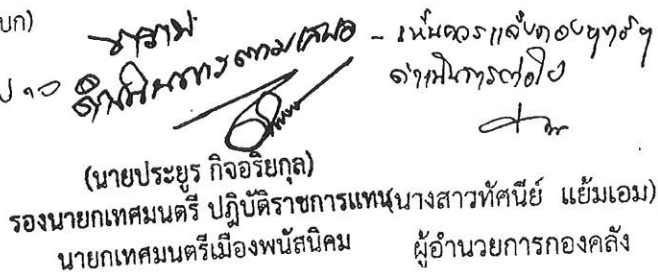 บก)
ทราบ
ดำเนินการตามเสนอ
- เห็นควรแจ้งกองยุทธฯ
ดำเนินการต่อไป
(นายประยูร กิจอริยกุล)
รองนายกเทศมนตรี ปฏิบัติราชการแทน
นายกเทศมนตรีเมืองพนัสนิคม
(นางสาวทัศนีย์ แย้มเอม)
ผู้อำนวยการกองคลัง